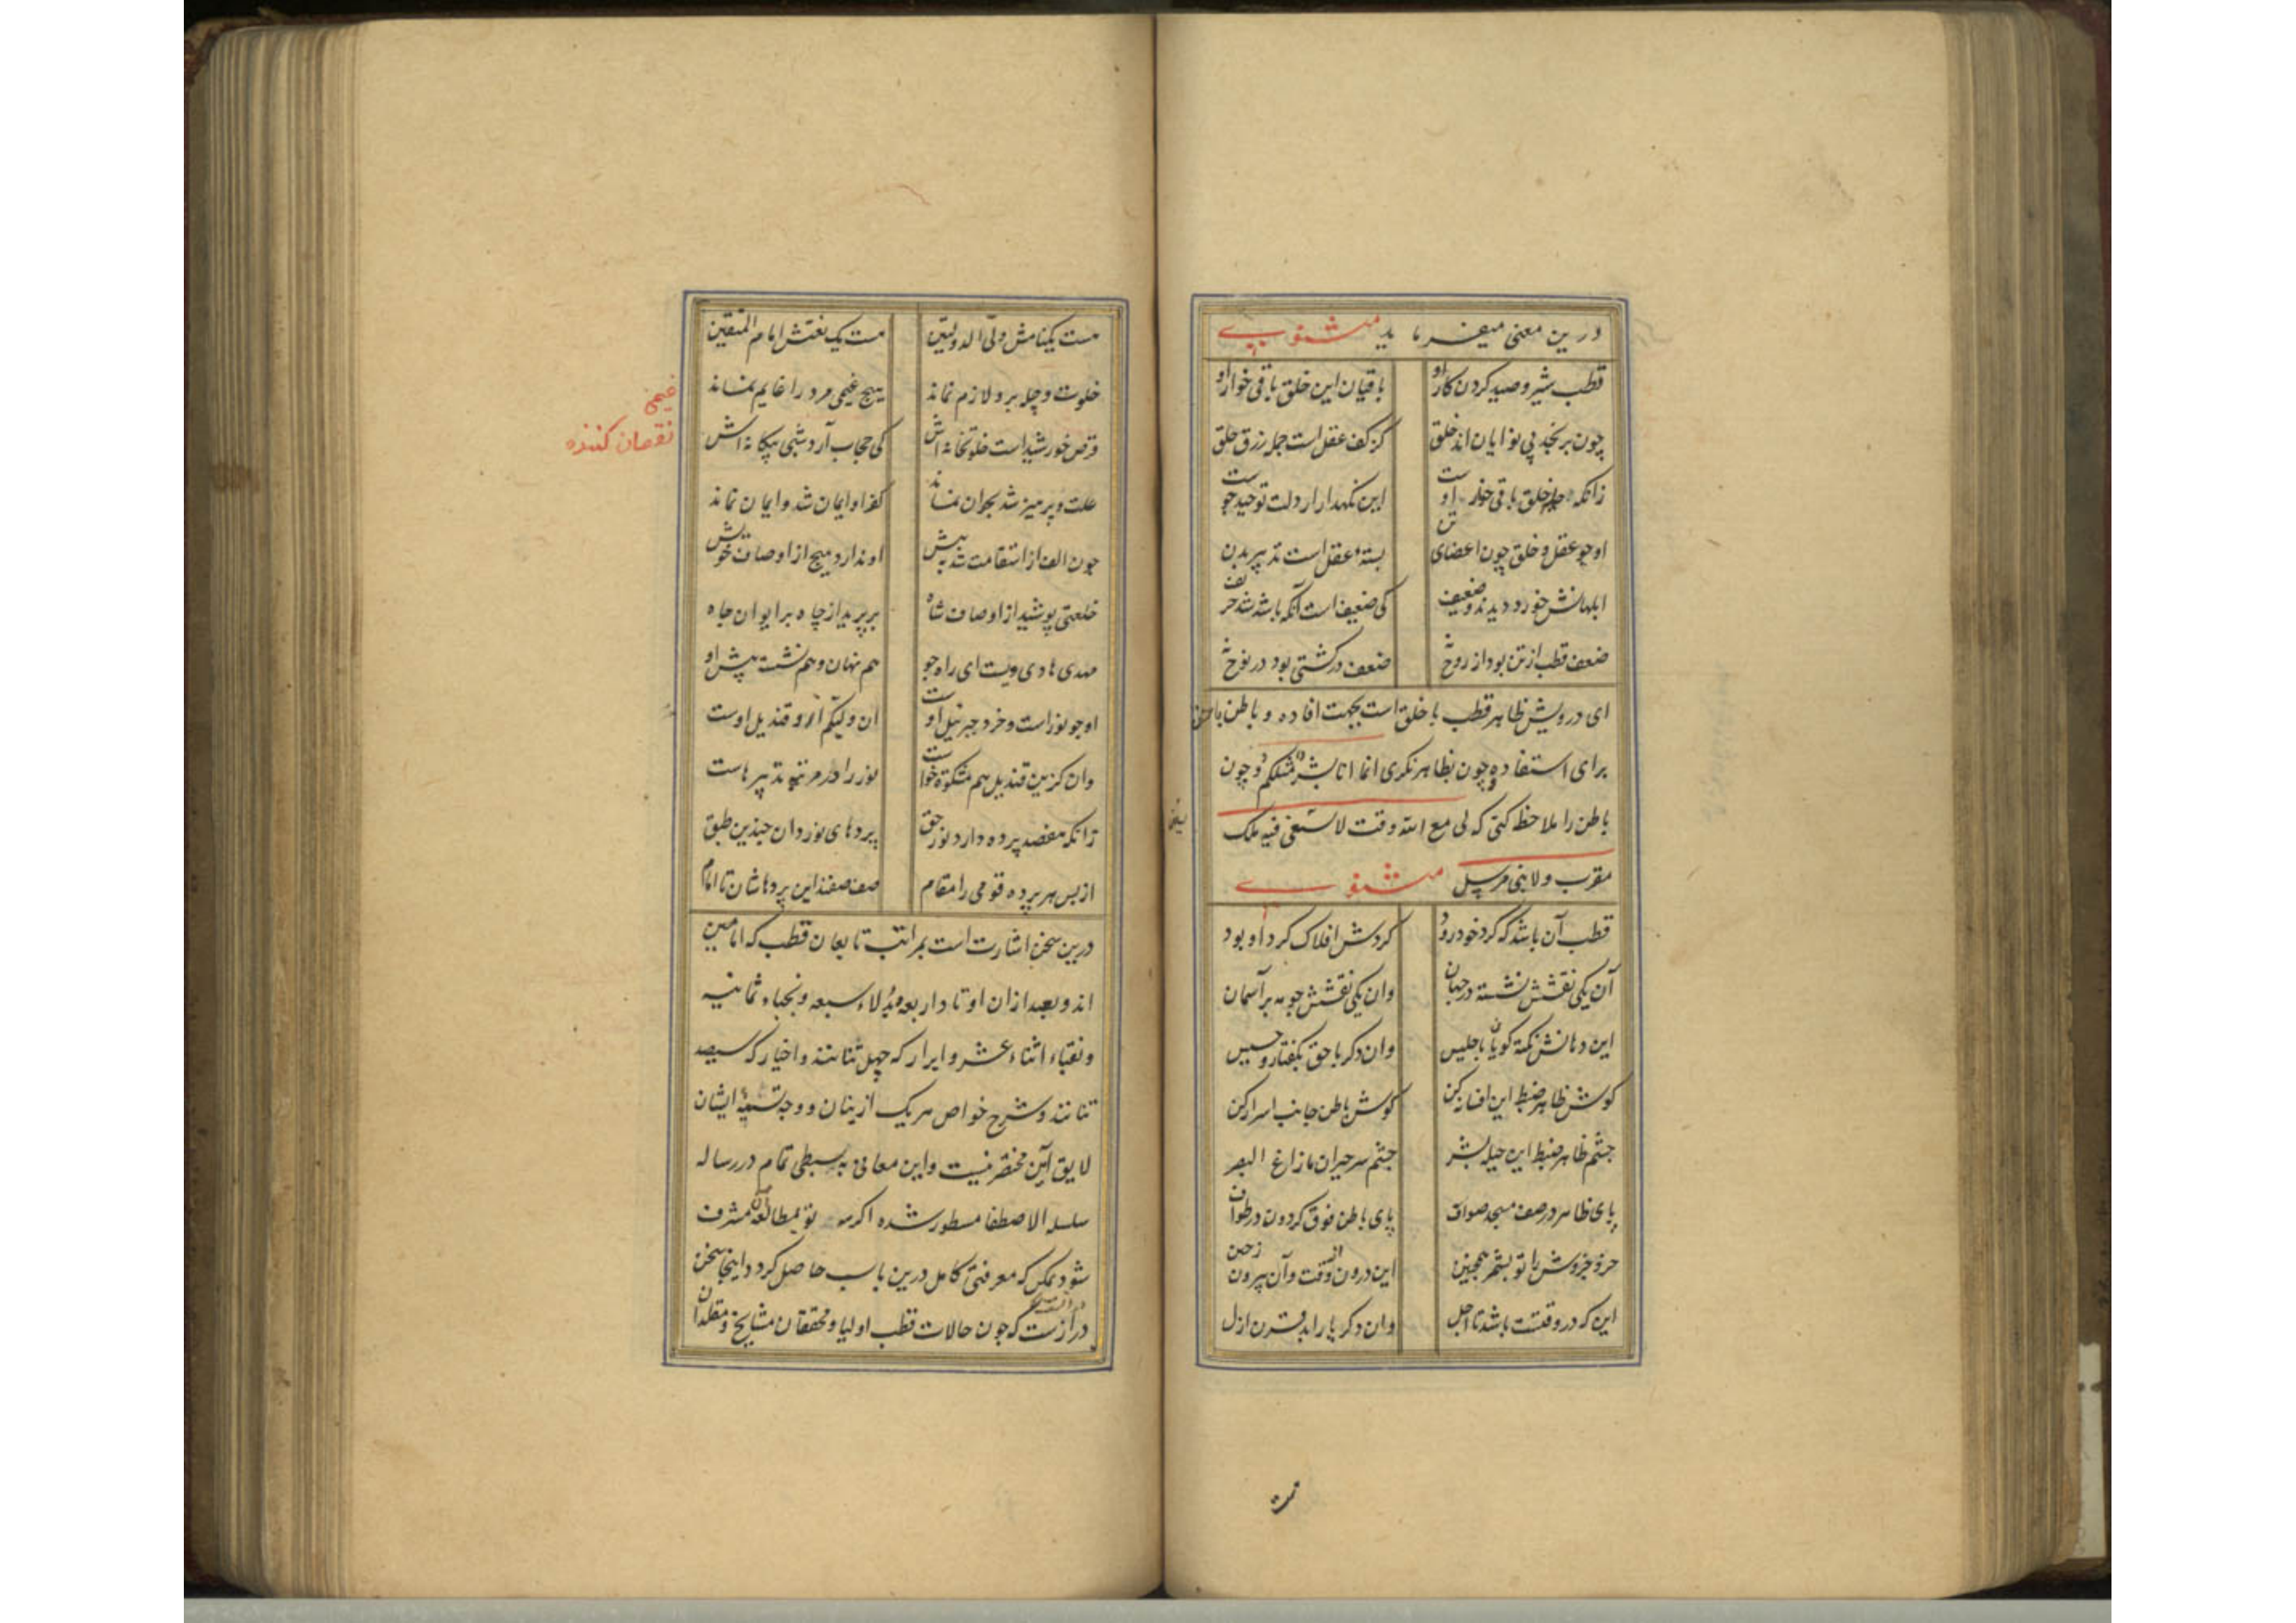 درین معنی میفرماید مثنوی
قطب شیر و صید کردن کار او باقیان این خلق باقی خوار او
چون برنجد بی نوا یان اند خلق کز کف عقل است جمله رزق حلق
زانکه خلق باقی خوار اوست این نکهدار ار دلت توحید جوست
او چو عقل و خلق چون اعضای تن بسته عقل است تدبیر بدن
ابلهانش خورد دیدند و ضعیف کی ضعیف است آنکه باشد شه حریف
ضعف قطب از تن بود از روح نه ضعف در کشتی بود در نوح نه
ای درویش ظاهر قطب با خلق است بجهت افاده و باطن با حق
برای استفاده و چون بظاهر نکری انما انا بشر مثلکم و چون
باطن را ملاحظه کنی که لی مع الله وقت لا یسعنی فیه ملک
مقرب ولا نبی مرسل مثنوی
قطب آن باشد که کرد خود رود کردش افلاک کرد او بود
آن یکی نقشش نشسته در جهان وان یکی نقشش چو مه بر آسمان
این دهانش نکته کویان با جلیس وان دکر با حق بکفتار و حسیس
کوش ظاهر ضبط این افسانه کن کوش باطن جانب اسرار کن
چشم ظاهر ضبط این حیله بشر چشم سر حیران مازاغ البصر
پای ظاهر در صف مسجد صواف پای باطن فوق کردون در طواف
جزو جزوش را تو بشمر همچنین این درون وقت و آن بیرون از حین
این که در وقتست باشد تا اجل وان دکر یار ابد قرن ازل
هست یکنامش ولی الدولتین هست یک نعتش امام المتقین
خلوت و چله برو لازم نماند هیچ غیمی مرد را غایم نماند
قرص خورشید است خلوتخانه اش کی حجاب آرد شب بیکانه اش
علت و پرهیز شد بحران نماند کفر او ایمان شد و ایمان نماند
چون الف از استقامت شد به پیش او ندارد هیچ از اوصاف خویش
خلعتی پوشید از اوصاف شاه بر پرید از چاه بر ایوان جاه
مهدی هادی ویست ای راه جو هم نهان و هم نشسته پیش او
او چو نور است و خرد جبریل اوست ان ولی کم ازو قندیل اوست
وان کزین قندیل هم مشکوة خواست نور را در مرتبه تدبیر هاست
زانکه هفصد پرده دارد نور حق پردهای نور دان چندین طبق
از پس هر پرده قومی را مقام صف صفند این پردهاشان تا امام
درین سخن اشارت است بمراتب تابعان قطب که امامین
اند و بعد ازان اوتاد اربعه و بدلاء سبعه و نجباء ثمانیه
و نقباء اثناء عشر و ابرار که چهل تنانند و اخیار که سیصد
تنانند و شرح خواص هر یک ازینان و وجه تسمیه ایشان
لایق این مختصر نیست و این معانی به بسطی تمام در رساله
سلسله الاصطفا مسطور شده اکر تو بمطالعه آن مشرف
شود ممکن که معرفتی کامل درین باب حاصل کردد و اینجا سخن
دراز ست که چون حالات قطب اولیا و محققان مشایخ و مقلدان
غیمی
نقصان کننده